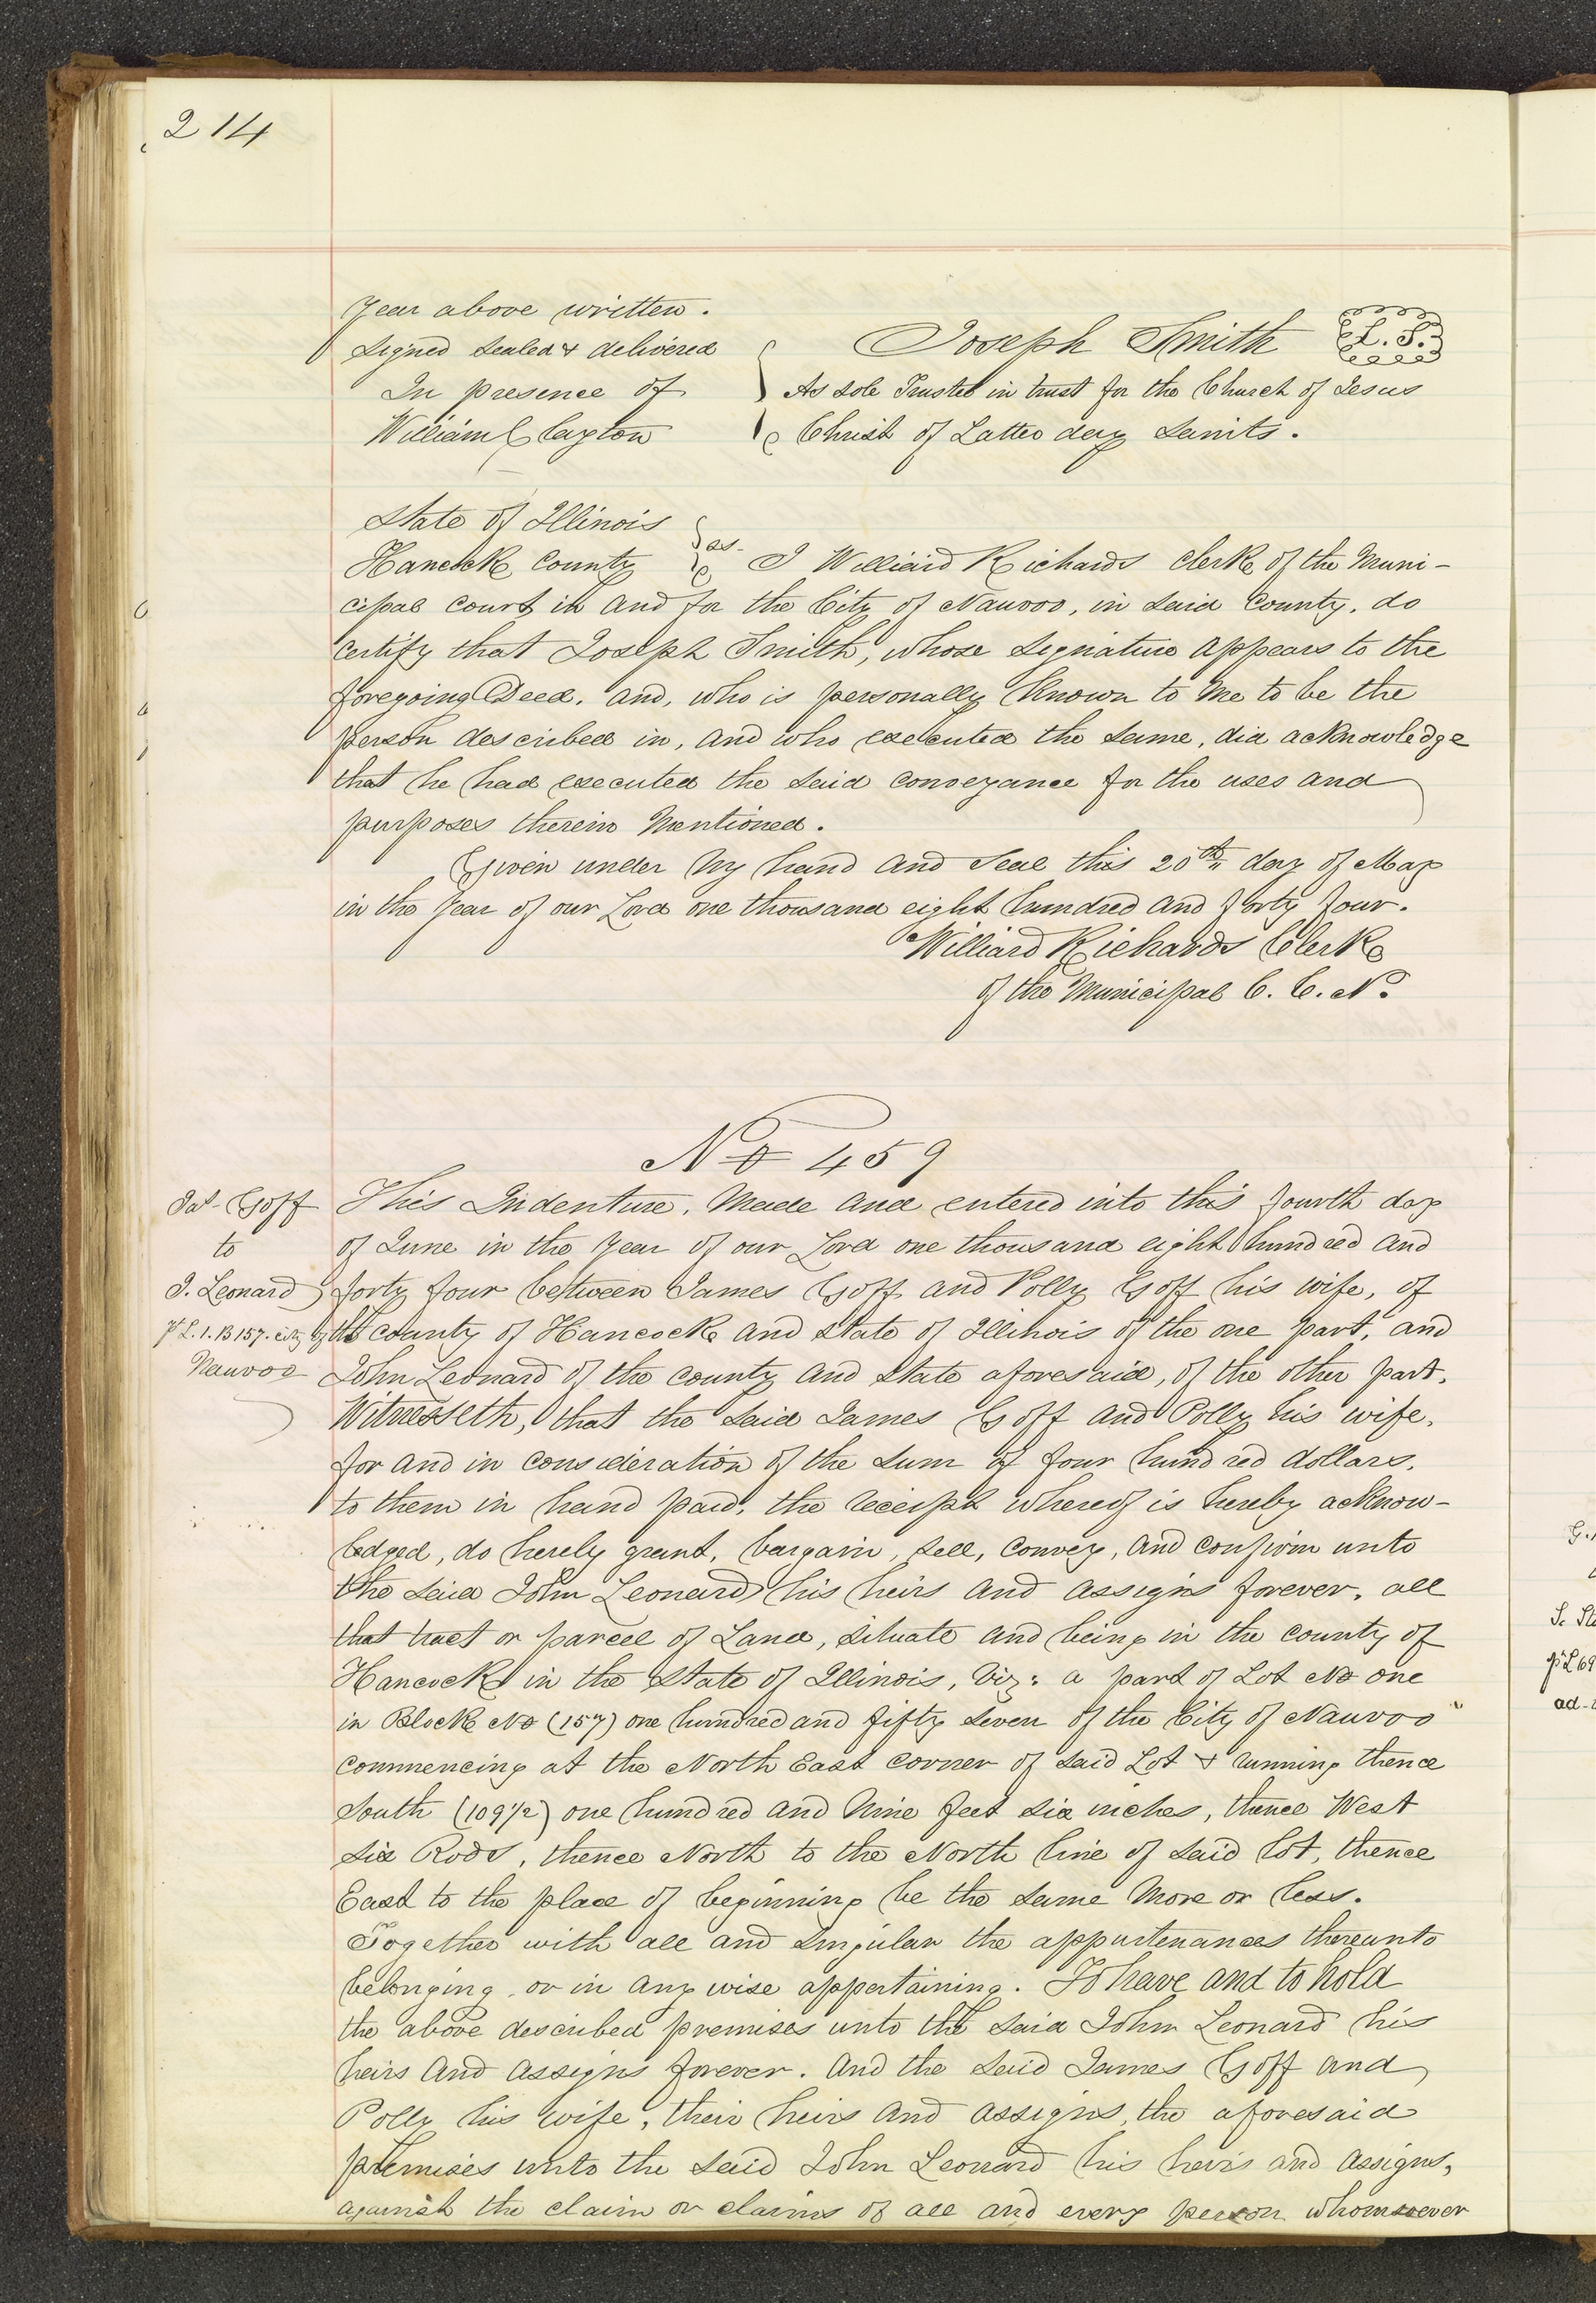 214
Year above written.
Signed Sealed & delivered
In presence of
William Clayton
Joseph Smith L. S.
As sole Trustee in trust for the Church of Jesus
Christ of Latter day Saints.
State of Illinois
Hancock County ss. I Williard Richards Clerk of the Muni-
cipal Court in and for the City of Nauvoo, in Said County, do
Certify that Joseph Smith, whose Signature appears to the
foregoing Deed, and, who is personally known to me to be the
person described in, and who executed the Same, did acknowledge
that he had executed the Said Conveyance for the uses and
purposes therein Mentioned.
Given under my hand and Seal this 20th day of May
in the Year of our Lord one thousand eight hundred and forty four.
Williard Richards Clerk
of the Municipal C. C. N.
No 459
Jas Goff
to
J. Leonard
pt L. 1. B 157. city of
Nauvoo
This Indenture, Made and entered into this fourth day
of June in the Year of our Lord one thousand eight hundred and
forty four between James Goff and Polly Goff his wife, of
the County of Hancock and State of Illinois of the one part, and
John Leonard of the County and State aforesaid, of the other part.
Witnesseth, that the Said James Goff and Polly his wife,
for and in Consideration of the Sum of four hundred dollars,
to them in hand paid, the receipt whereof is hereby acknow-
ledged, do hereby grant, bargain, Sell, Convey, and Confirm unto
the Said John Leonard his heirs and assigns forever, all
that tract or parcel of Land, Situate and being in the County of
Hancock in the State of Illinois, Viz: a part of Lot No one
in Block No (157) one hundred and fifty Seven of the City of Nauvoo
Commencing at the North East Corner of Said Lot & running thence
South (109 1/2) one hundred and Nine feet Six inches, thence West
Six Rods, thence North to the North line of Said lot, thence
East to the place of beginning be the Same More or less.
Together with all and Singular the appurtenances thereunto
belonging, or in any wise appertaining. To have and to hold
the above described premises unto the Said John Leonard his
heirs and assigns forever. And the Said James Goff and
Polly his wife, their heirs and assigns, the aforesaid
premises unto the Said John Leonard his heirs and assigns,
against the claim or claims of all and every person whomsoever